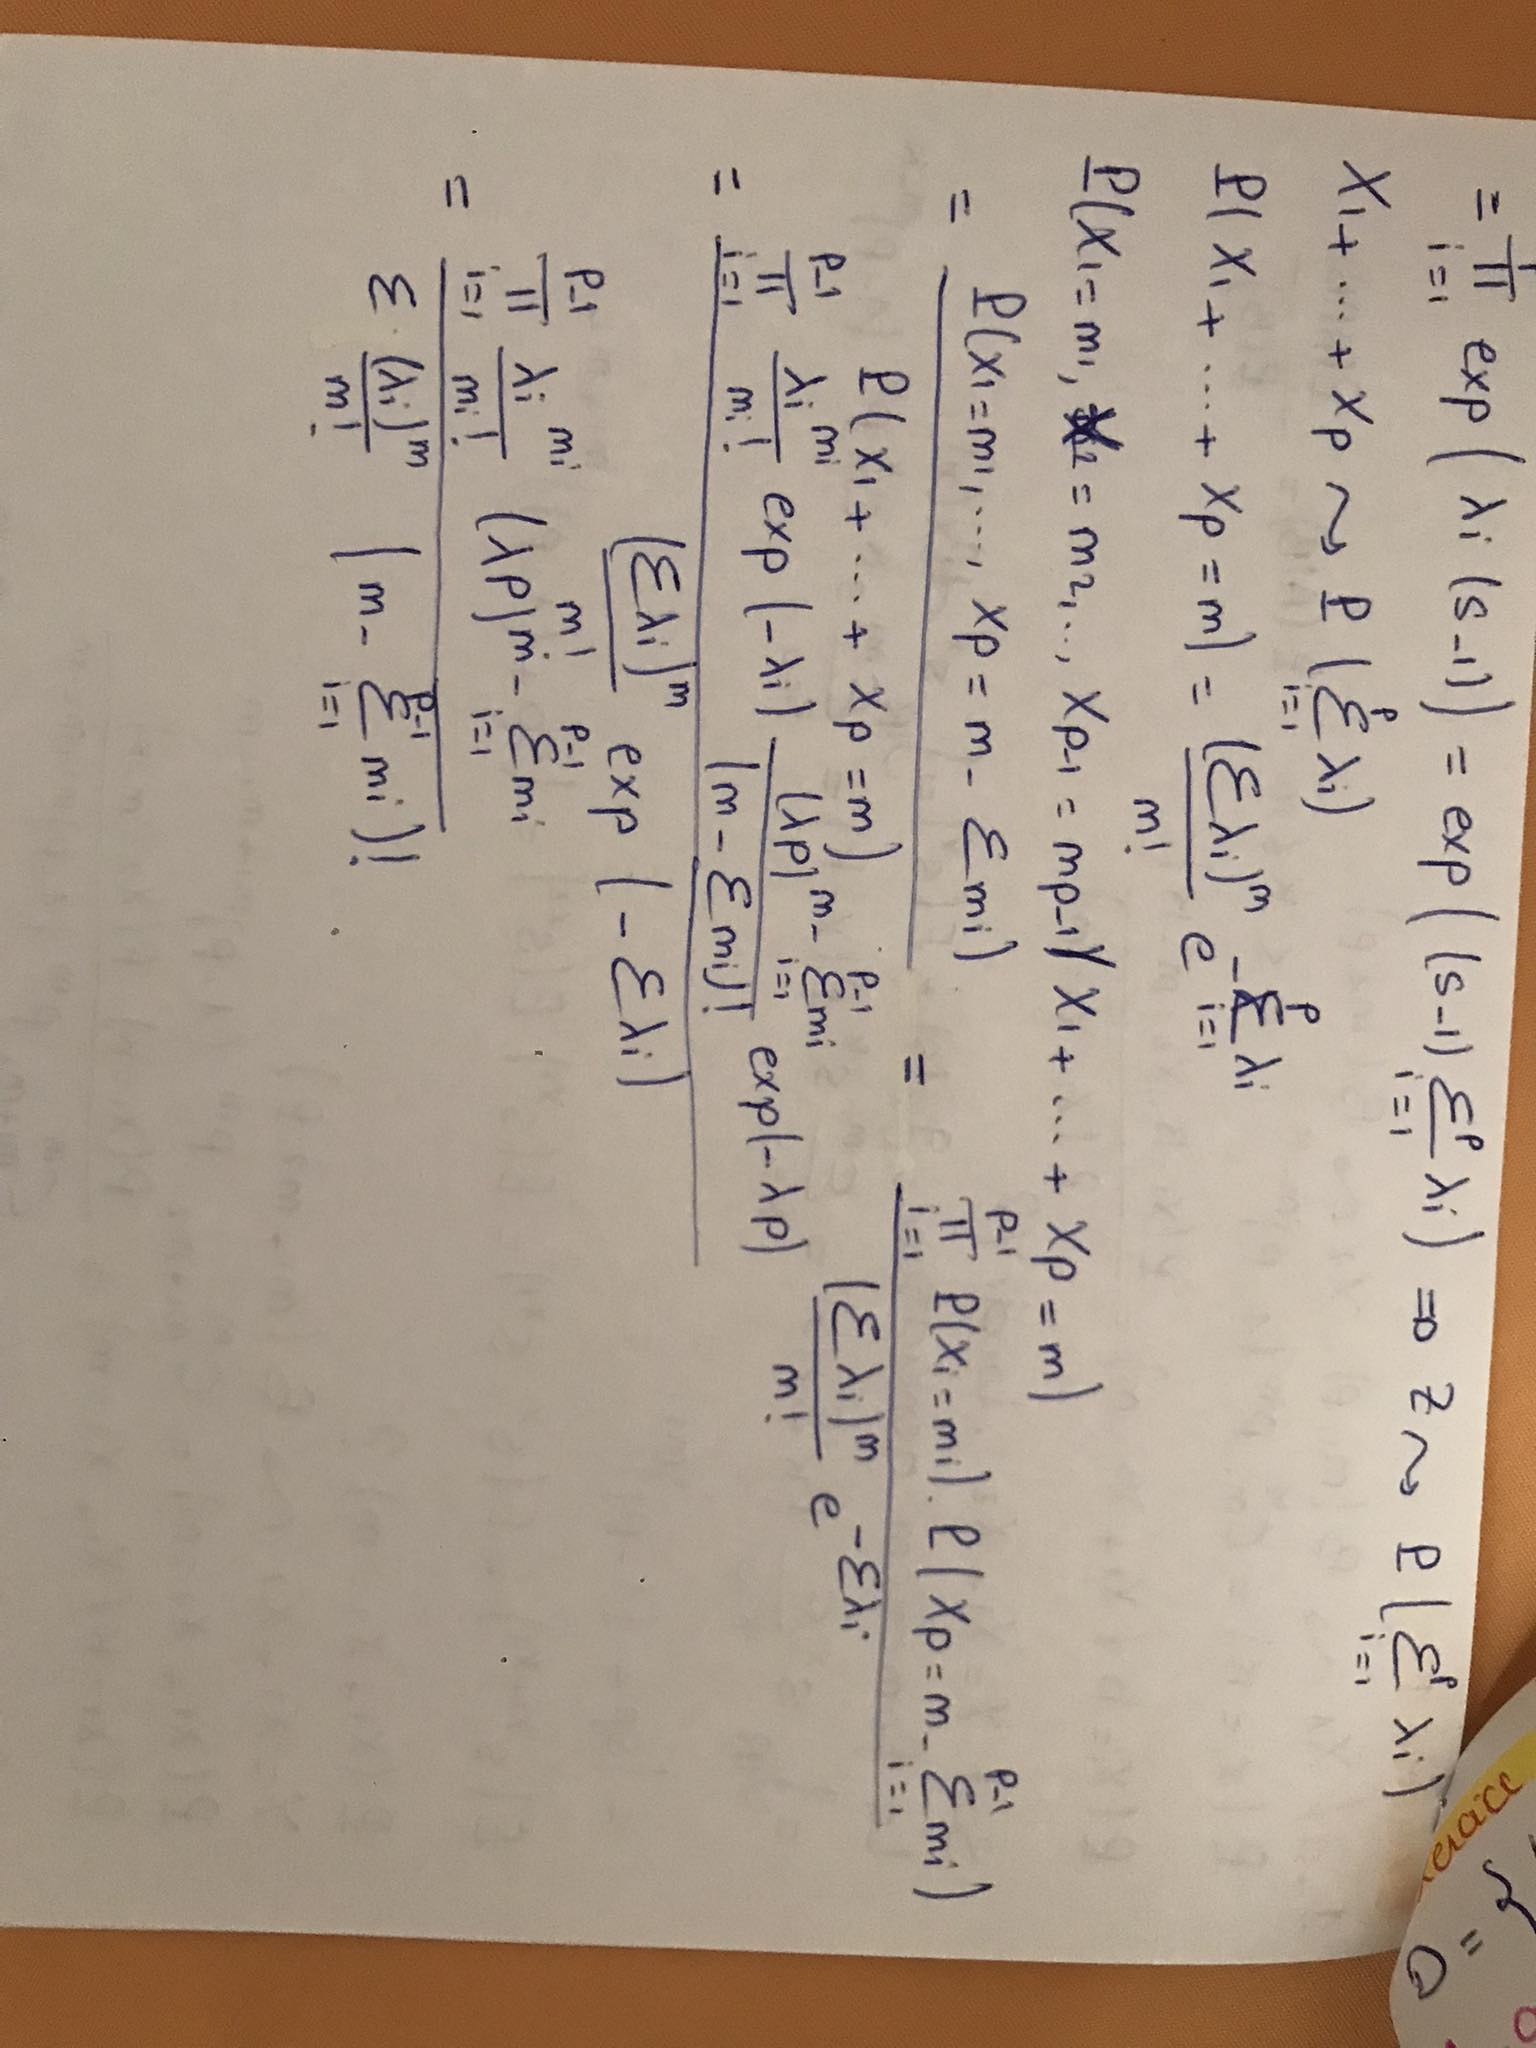 = ∏_{i=1}^{p} exp(λi (s-1)) = exp((s-1) Σ_{i=1}^{p} λi) ⇒ Z ⇝ P(Σ_{i=1}^{p} λi)
X1 + ... + Xp ⇝ P(Σ_{i=1}^{p} λi)
P(X1 + ... + Xp = m) = (Σλi)^m / m! e^{-Σ_{i=1}^{p} λi}
P(X1 = m1, X2 = m2, .., Xp-1 = mp-1 / X1 + ... + Xp = m)
= P(X1 = m1, ..., Xp = m - Σmi) / P(X1 + ... + Xp = m) = ∏_{i=1}^{p-1} P(Xi = mi) . P(Xp = m - Σ_{i=1}^{p-1} mi) / (Σλi)^m / m! e^{-Σλi}
= ∏_{i=1}^{p-1} λi^{mi} / mi! exp(-λi) (λp)^{m - Σ_{i=1}^{p-1} mi} / (m - Σmi)! exp(-λp) / (Σλi)^m / m! exp(-Σλi)
= ∏_{i=1}^{p-1} λi^{mi} / mi! (λp)^{m - Σ_{i=1}^{p-1} mi} / Σ (λi)^m / m! (m - Σ_{i=1}^{p-1} mi)!